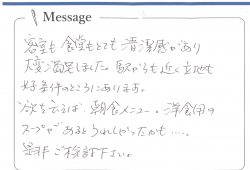 Message
客室も食堂もとても清潔感があり
大変満足しました。駅からも近く立地も
好条件のところにあります。
欲を言えば、朝食メニュー、洋食用の
スープがあるとうれしかったかも….
是非ご検討下さい。